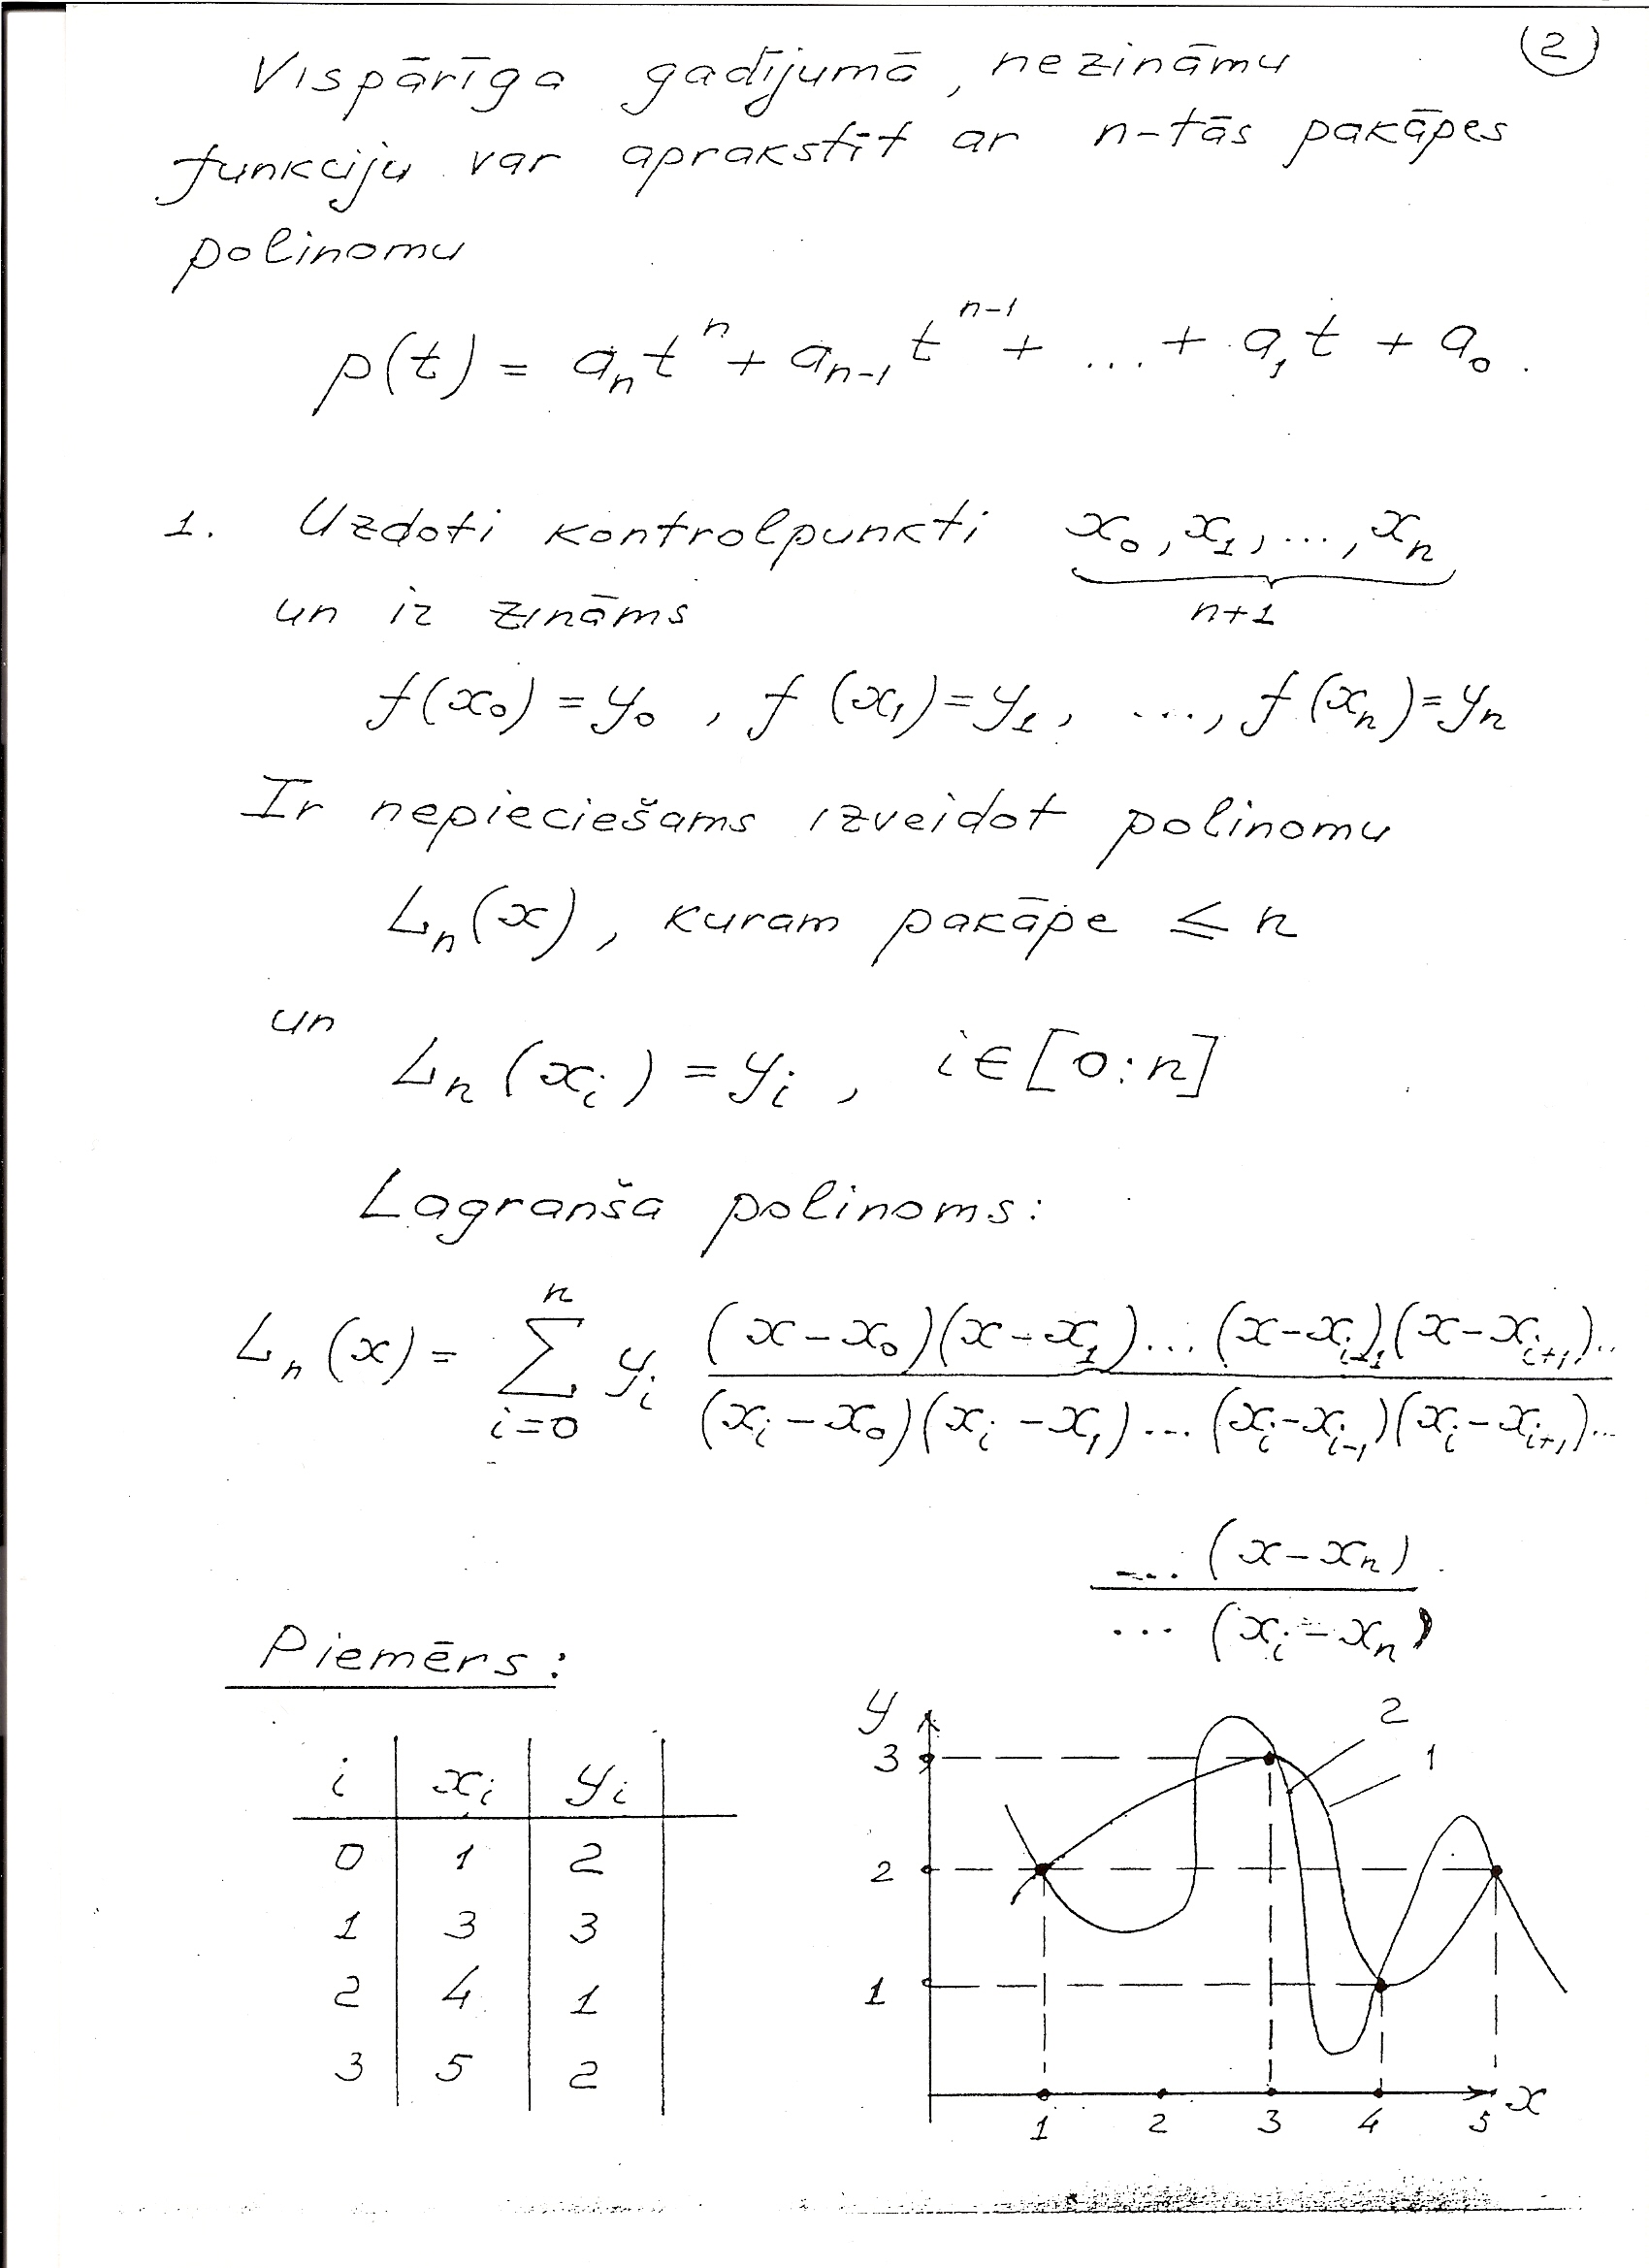 2
Vispārīga gadījumā, nezināmu
funkciju var aprakstīt ar n-tās pakāpes
polinomu
p(t) = aₙtⁿ + aₙ₋₁tⁿ⁻¹ + ... + a₁t + a₀.
1. Uzdoti kontrolpunkti x₀, x₁, ..., xₙ
un ir zināms n+1
f(x₀) = y₀, f(x₁) = y₁, ..., f(xₙ) = yₙ
Ir nepieciešams izveidot polinomu
Lₙ(x), kuram pakāpe ≤ n
un
Lₙ(xᵢ) = yᵢ, i ∈ [0:n]
Lagranša polinoms:
n
Lₙ(x) = ∑ yᵢ (x – x₀)(x – x₁)...(x – xᵢ₋₁)(x – xᵢ₊₁)...
i=0 (xᵢ – x₀)(xᵢ – x₁)...(xᵢ – xᵢ₋₁)(xᵢ – xᵢ₊₁)...
... (x – xₙ)
... (xᵢ – xₙ)
Piemērs:
i xᵢ yᵢ
0 1 2
1 3 3
2 4 1
3 5 2
y 2
3 1
2
1
x
1 2 3 4 5